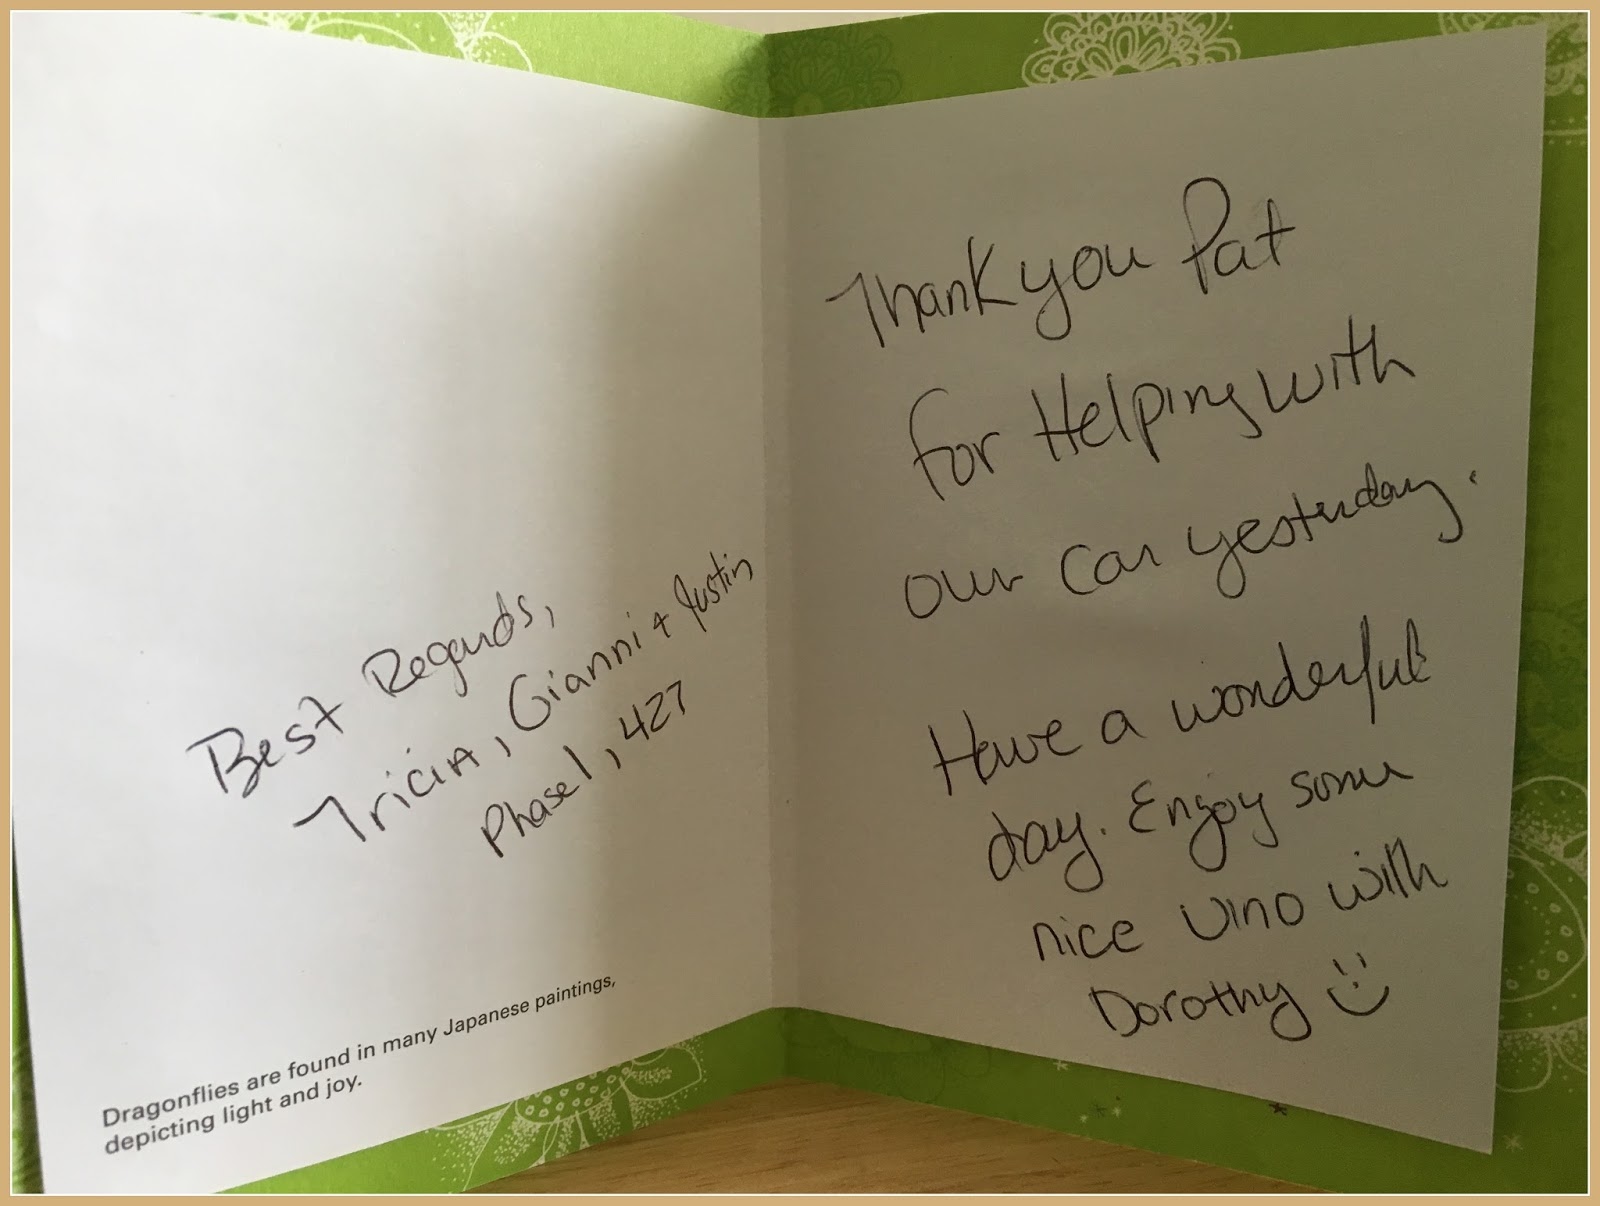 Best Regards,
Tricia, Gianni + Justin
Phase 1, 427
Dragonflies are found in many Japanese paintings,
depicting light and joy.
Thank you Pat
for Helping with
our car yesterday.
Have a wonderful
day. Enjoy some
nice vino with
Dorothy